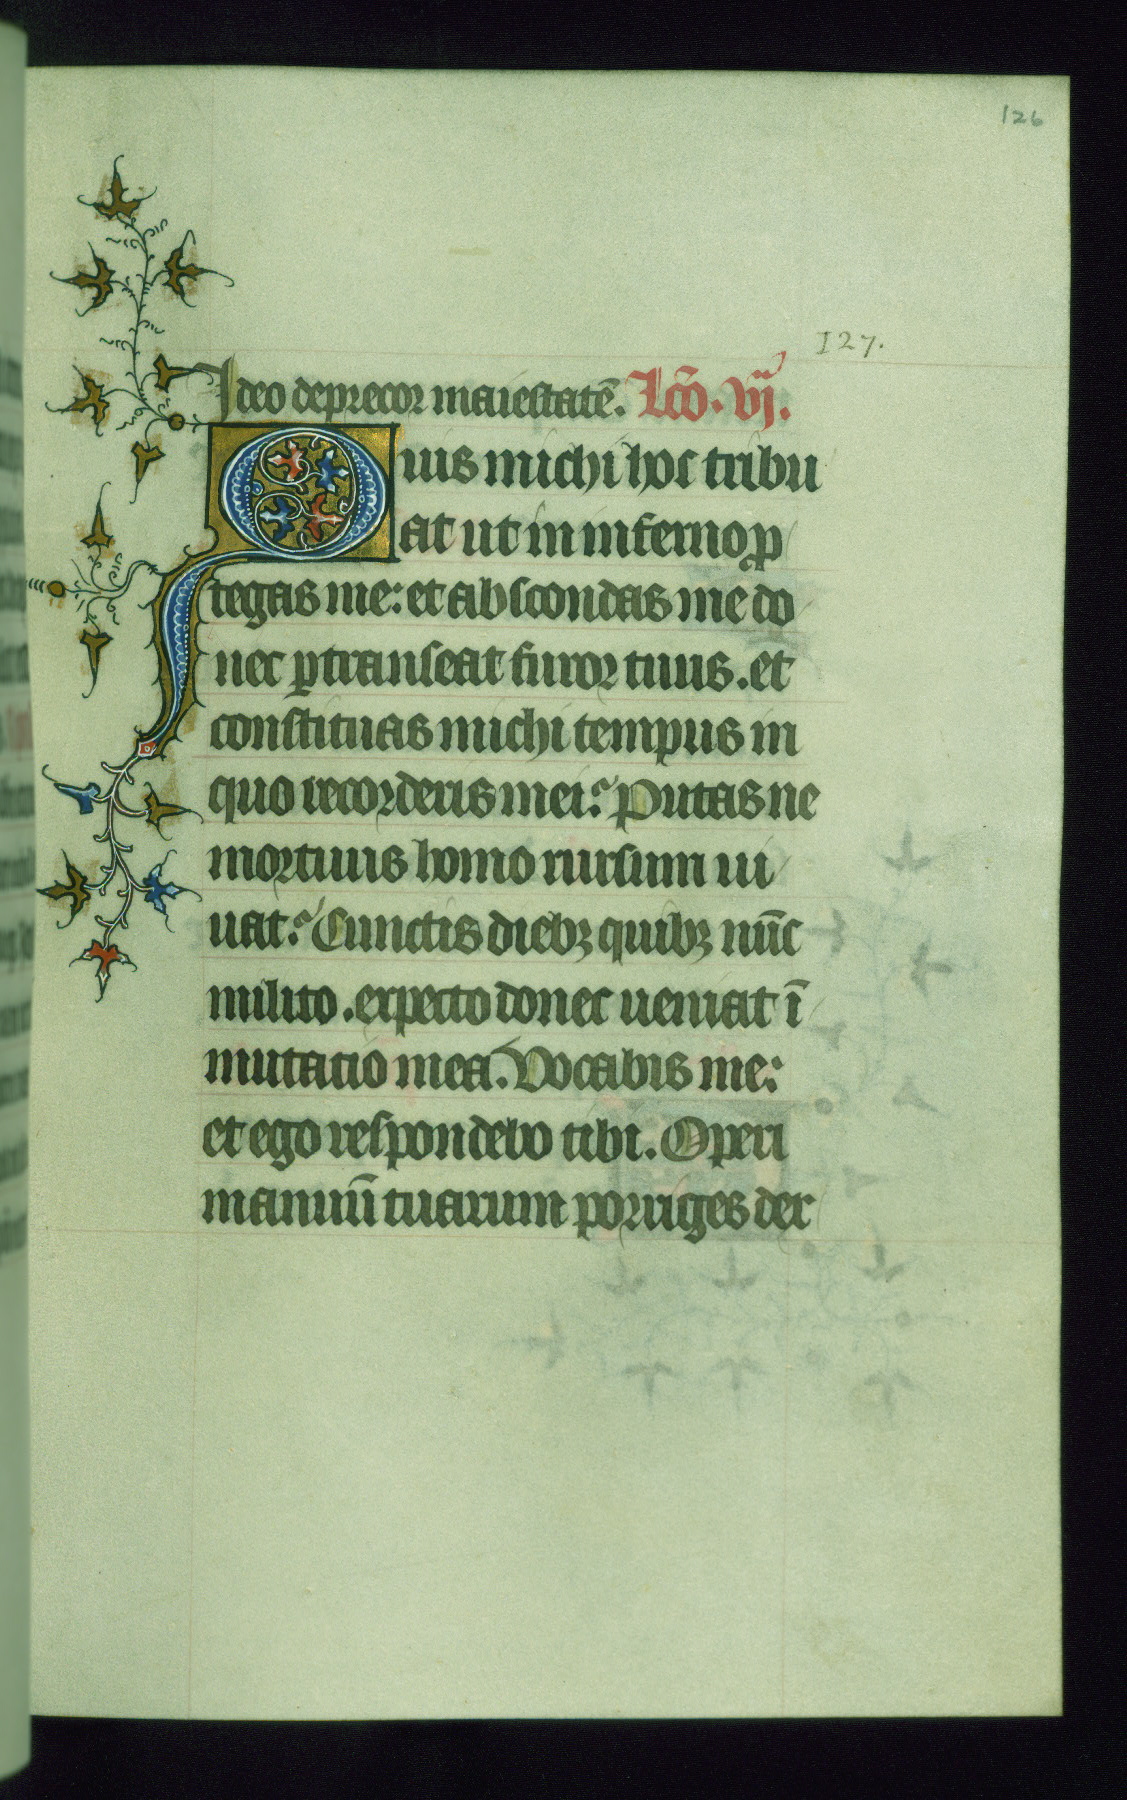 126
127.
Ideo deprecor maiestatē. Lcō. vij.
Quis michi hoc tribu
at ut in inferno ꝓ
tegas me: et abscondas me do
nec ꝑtranseat furor tuus. et
constituas michi tempus in
quo recorderis mei? Putas ne
mortuus homo rursum ui
uat? Cunctis diebꝫ quibꝫ nūc
milito. expecto donec ueniat ī
mutatio mea. Vocabis me:
et ego respondebo tibi. Operi
manuū tuarum porriges dex